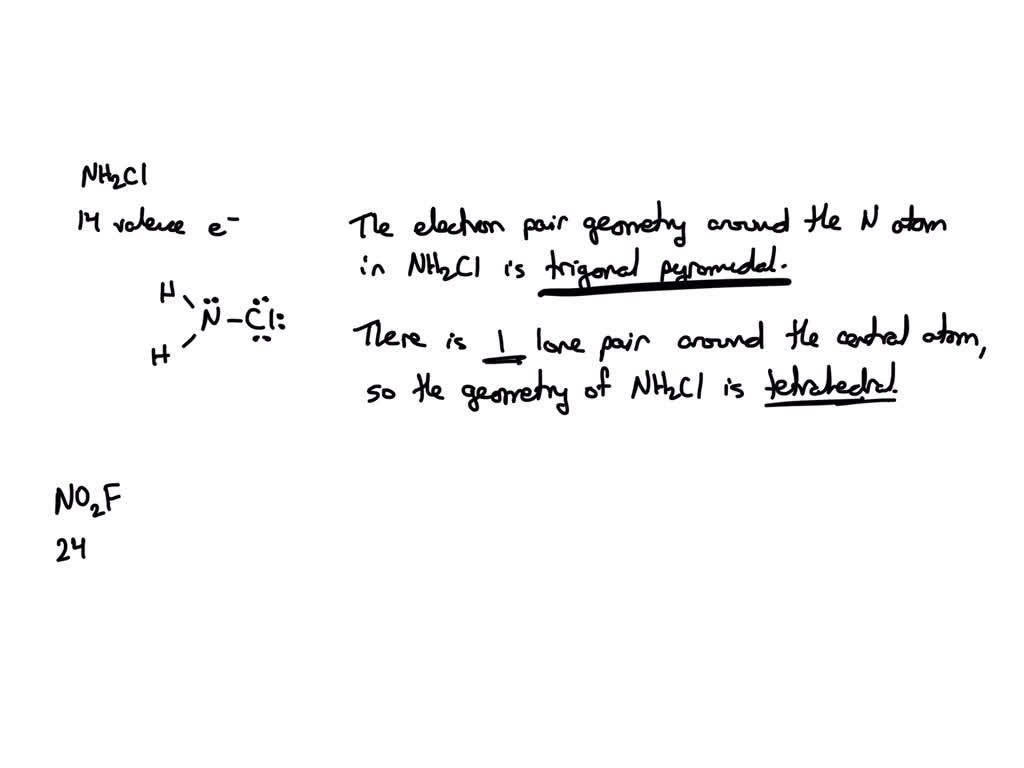 NH₂Cl
14 valence e⁻
H
N – Cl
H
The electron pair geometry around the N atom
in NH₂Cl is trigonal pyramidal.
There is 1 lone pair around the central atom,
so the geometry of NH₂Cl is tetrahedral.
NO₂F
24